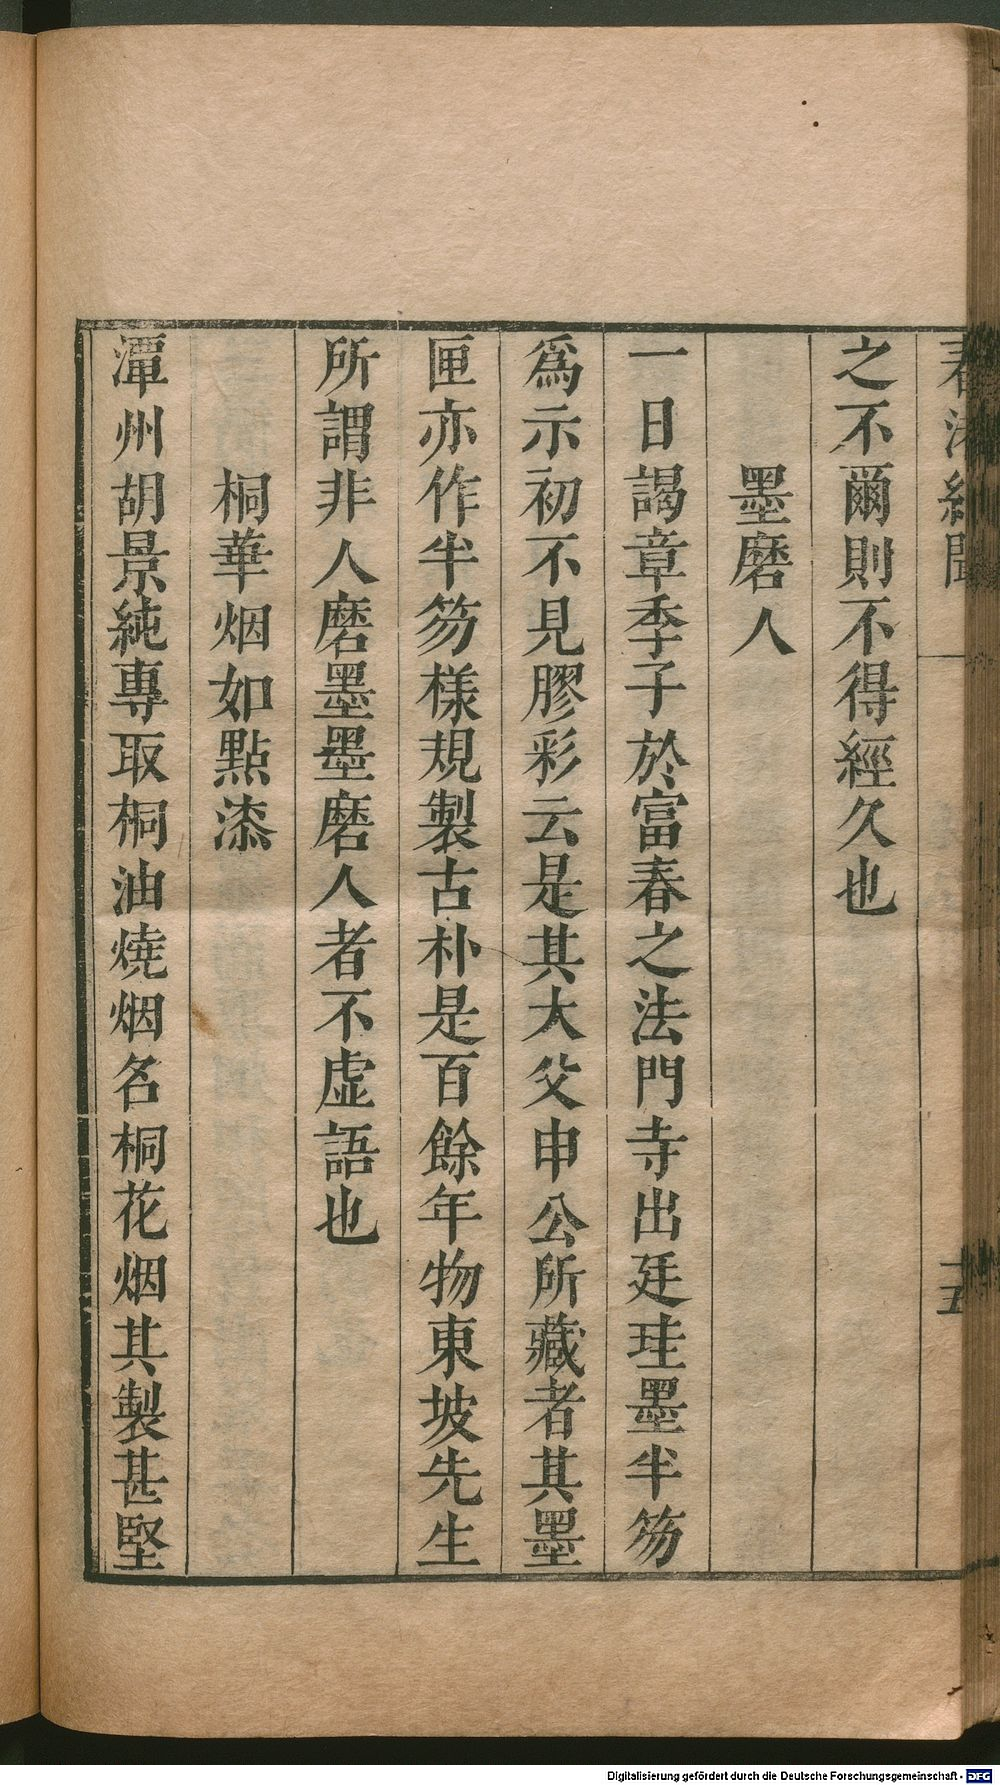 春渚紀聞
十五
之不爾則不得經久也
墨磨人
一日謁章季子於富春之法門寺出廷珪墨半笏
爲示初不見膠彩云是其大父申公所藏者其墨
匣亦作半笏樣規製古朴是百餘年物東坡先生
所謂非人磨墨墨磨人者不虛語也
桐華烟如點漆
潭州胡景純專取桐油燒烟名桐花烟其製甚堅
Digitalisierung gefördert durch die Deutsche Forschungsgemeinschaft - DFG